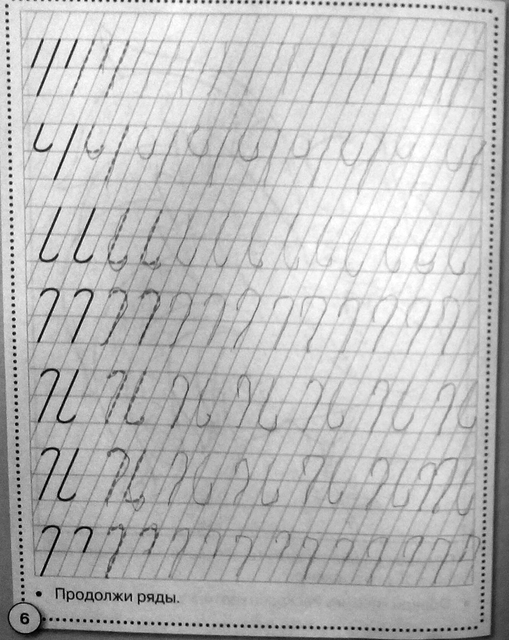 Продолжи ряды.
6